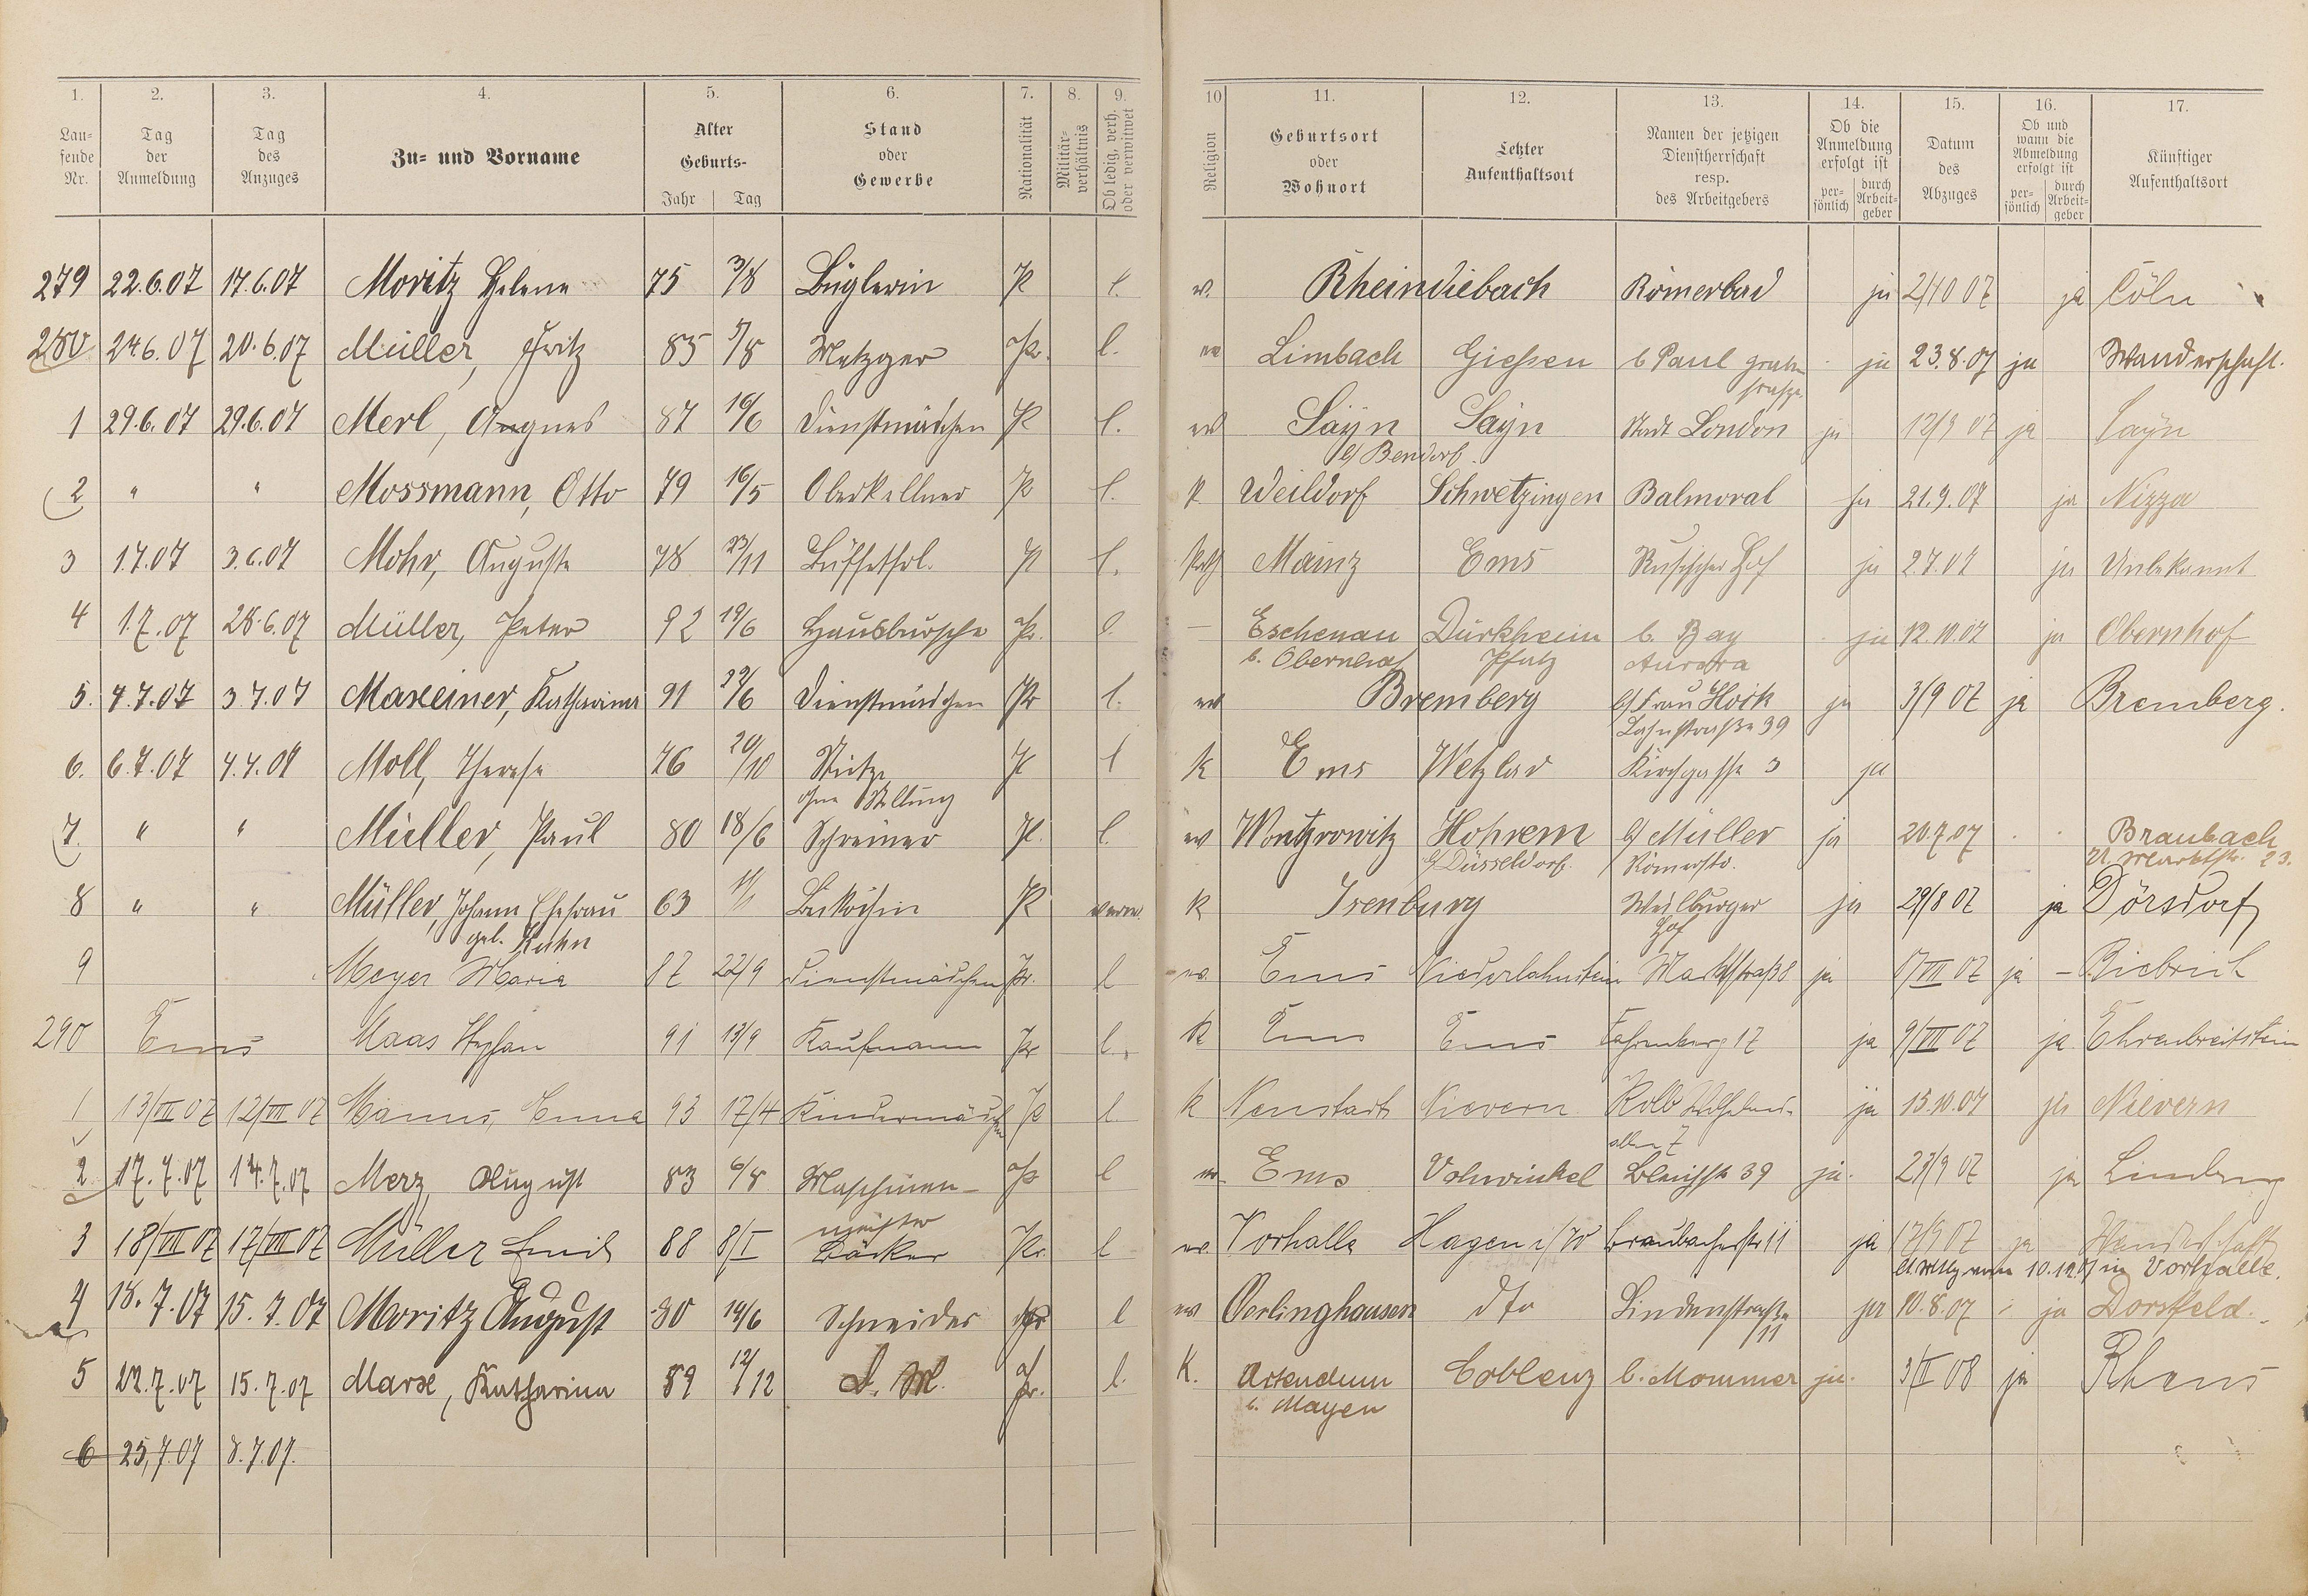 1. 2. 3. 4. 5. 6. 7. 8. 9. 10 11. 12. 13. 14. 15. 16. 17.
Lau-
fende
Nr.
Tag
der
Anmeldung
Tag
des
Anzuges
Zu- und Vorname
Alter
Geburts-
Jahr Tag
Stand
oder
Gewerbe
Nationalität
Militär-
verhältnis
Ob ledig, verh.
oder verwitwet
Religion
Geburtsort
oder
Wohnort
Letzter
Aufenthaltsort
Namen der jetzigen
Dienstherrschaft
resp.
des Arbeitgebers
Ob die
Anmeldung
erfolgt ist
per-
sönlich
durch
Arbeit-
geber
Datum
des
Abzuges
Ob und
wann die
Abmeldung
erfolgt ist
per-
sönlich
durch
Arbeit-
geber
Künftiger
Aufenthaltsort
279 22.6.07 17.6.07 Moritz Helene 75 3/8 Büglerin Pr l. ev. Rheindiebach Römerbad ja 2/10 07 ja Cöln
280 24.6.07 20.6.07 Müller, Fritz 85 5/8 Metzger Pr. l. ev Limbach Giessen b Paul Graben
straße
1 29.6.07 29.6.07 Merl, Agnes 87 10/6 Dienstmädchen Pr l. ev Sayn Sayn Stadt London ja 12/9 07 ja Sayn
b/ Bendorf
ja 23.8.07 ja Wanderschaft.
2 " " Mossmann, Otto 79 16/5 Oberkellner Pr l. k Weildorf Schwetzingen Balmoral ja 21.9.07 ja Nizza
3 1.7.07 3.6.07 Mohr, Auguste 78 23/11 Büffetfrl. Pr l. kath Mainz Ems Russischer Hof ja 2.7.07 ja Unbekannt
4 1.7.07 28.6.07 Müller, Peter 92 19/6 Hausbursche Pr. l. — Eschenau Dürkheim b. Bay ja 12.10.07 ja Obernhof
b. Obernhof Pfalz Aurora
5. 4.7.07 3.7.07 Maxeiner, Katharina 91 22/6 Dienstmädchen Pr l. ev Bremberg b/ Frau Hock ja 3/9 07 ja Bremberg.
Lahnstraße 39
6. 6.7.07 4.7.07 Moll, Therese 76 20/10 Stütze Pr l k Ems Wetzlar Kirchgasse 3 ja
ohne Stellung
7. " " Müller, Paul 80 18/6 Schreiner Pr. l. ev Hohrem b/ Müller ja 20.7.07 Braubach
b/ Düsseldorf. Römerstr. 23.
8 " " Müller, Johann Ehefrau 63 1/1 Beiköchin Pr verw. k Isenburg Weilburger ja 29/8 07 ja Dörsdorf
geb. Kuhn Hof
9 Meyer Maria 87 22/9 Dienstmädchen Pr. l ev. Ems Niederlahnstein Marktstraß 8 ja ja — Biebrich
290 Ems Maas Stephan 91 13/9 Kaufmann Pr l. k Ems Ems Fahrenberg 17 ja 9/VII 07 ja Ehrenbreitstein
1 13/VII 07 12/VII 07 Manns, Anna 93 17/4 Kindermädchen Pr l. k Neustadt Nievern Kolb Wilhelms- ja 15.10.07 ja Nievern
allee 7
2 17.7.07 14.7.07 Merz, August 83 6/8 Maschinen- Pr l ev. Ems Vohwinkel Bleichstr 39 ja. 23/9 07 ja Limburg
meister
3 18/VII 07 17/VII 07 Müller Emil 88 8/I Bäcker Pr. l ev Vorhalle Hagen i/W Braubacherstr 11 ja 17/9 07 ja Wanderschaft
10.12.07 in Vorhalle.
4 18.7.07 15.7.07 Moritz August 80 14/6 Schneider Pr l ev Oerlinghausen dto Lindenstraße ja 10.8.07 ja Dorstfeld.
11
5 22.7.07 15.7.07 Marx, Katharina 89 12/12 D. M. Pr. l. K. Coblenz b. Mommer ja. 3/II 08 ja Rhens
b. Mayen
6 25.7.07 8.7.07.